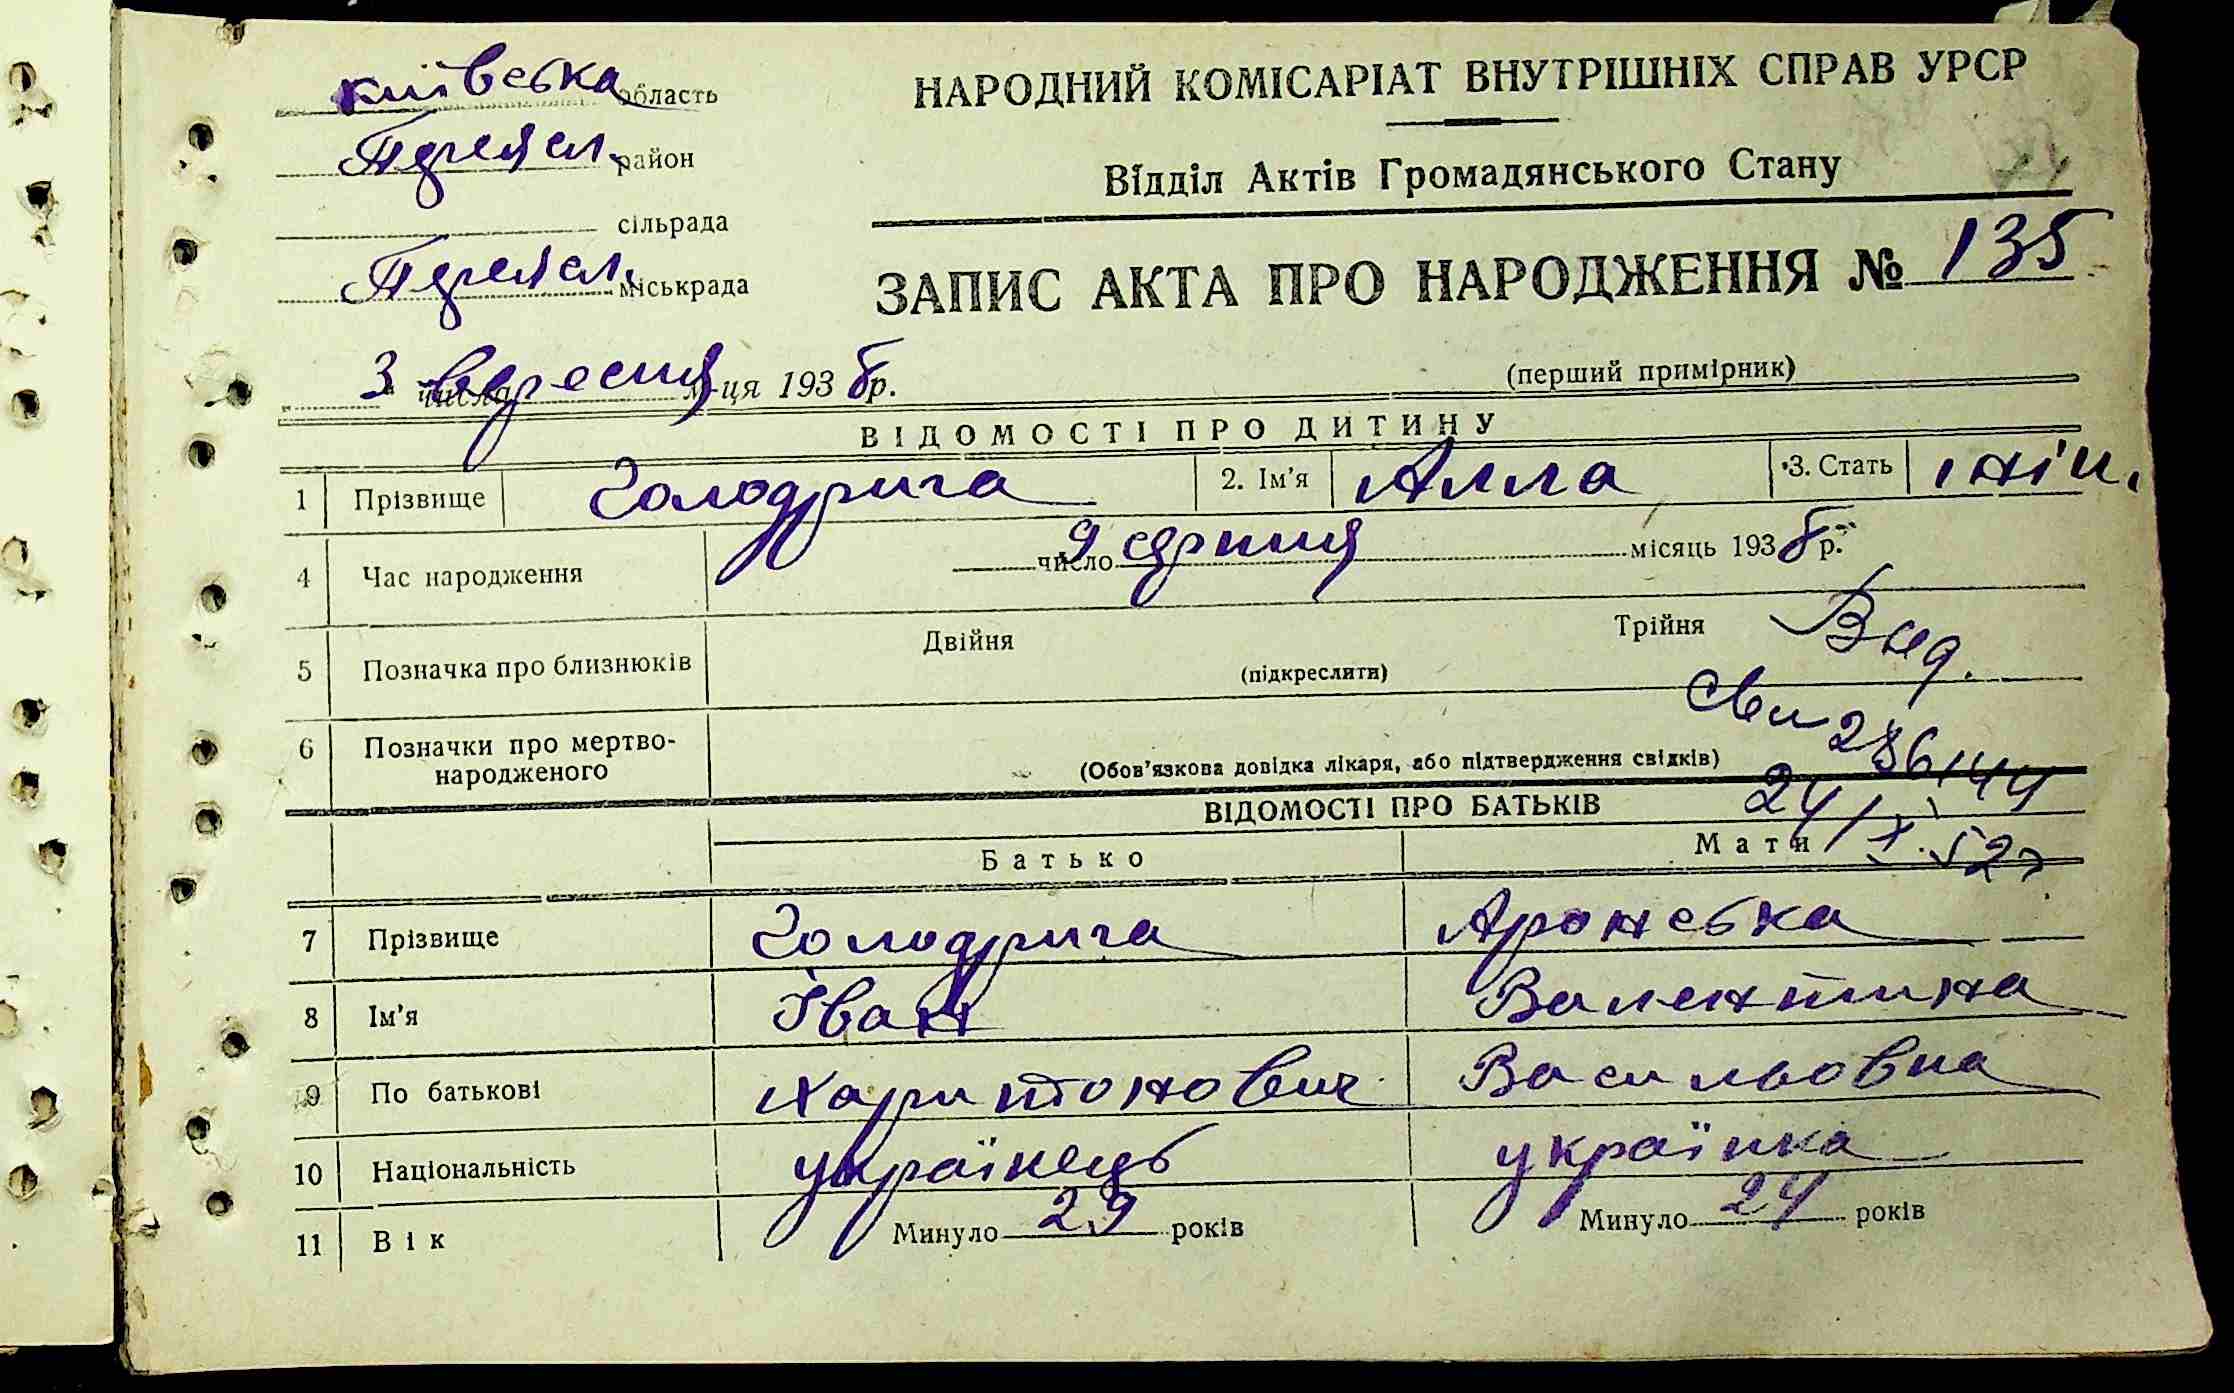 Київська область
Переясл. район
сільрада
Переясл. міськрада
НАРОДНИЙ КОМІСАРІАТ ВНУТРІШНІХ СПРАВ УРСР
Відділ Актів Громадянського Стану
ЗАПИС АКТА ПРО НАРОДЖЕННЯ № 135
3 числа вересня м-ця 1938 р.
(перший примірник)
ВІДОМОСТІ ПРО ДИТИНУ
1 Прізвище Голодрига 2. Ім'я Алла 3. Стать жін.
4 Час народження 9 число серпня місяць 1938 р.
5 Позначка про близнюків Двійня (підкреслити) Трійня
Вид.
6 Позначки про мертвонародженого (Обов'язкова довідка лікаря, або підтвердження свідків)
24/X.52
ВІДОМОСТІ ПРО БАТЬКІВ
Батько Мати
7 Прізвище Голодрига Аронська
8 Ім'я Іван Валентина
9 По батькові Харитонович Васильовна
10 Національність українець українка
11 Вік Минуло 29 років Минуло 24 років